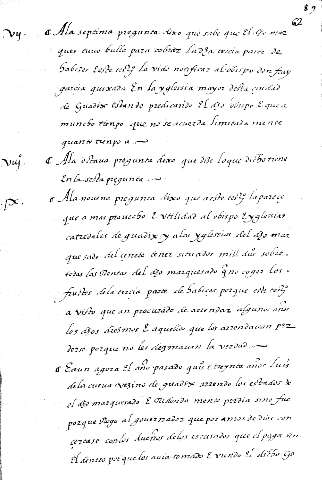 89
62
vij. A la septima pregunta dixo que sabe que el dho mar
ques tuvo bulla para cobrar la dha tercia parte de
habices E este testigo la vido notificar al obispo don fray
garcia quixada En la yglesia mayor desta ciudad
de Guadix estando predicando El dho obispo E que a
muncho tienpo que no se acuerda limitada mente
quanto tienpo a
viij. A la otava pregunta dixo que dize lo que dicho tiene
En la sesta pregunta
jx. A la novena pregunta dixo que a este testigo la parece
que a mas provecho E utilidad al obispo E yglesias
catredales de guadix y a las yglesias del dho mar
quesado del cenete tener situados mill ds sobre
todas las Rentas del dho marquesado q no coger los
frutos de la tercia parte de habices porque este testigo
a visto que an procurado de arrendar algunos años
los dhos diezmos E aquellos que los arrendavan per
derse porque no les dezmavan la verdad
E aun agora El año pasado quis E treynta años luis
de la cueva vezino de guadix arrendo los estados de
el dho marquesado E Redondamente perdia e ansi fue
porque Rogo al governador que por amor de dios con
certase con los dueños de los escusados que el pagava
El dinero porque los avia tomado E vendo El dicho Go